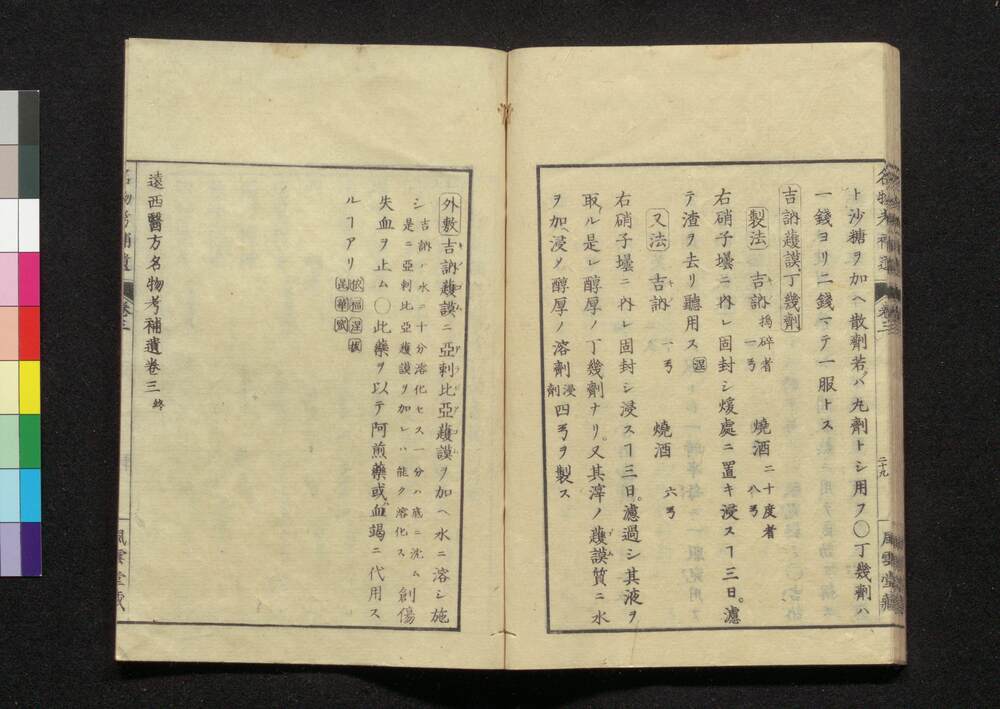 ト沙糖ヲ加ヘ散劑若クハ丸劑トシ用フ〇丁幾劑ハ
一錢ヨリ二錢マテ一服トス
吉訥護謨丁幾劑
製法 吉訥 搗碎者 一ヲ 燒酒 二十度者 八ヲ
右硝子壜ニ內レ固封シ煖處ニ置キ浸スヿ三日。濾
テ渣ヲ去リ聽用ス
又法 吉訥 一ヲ 燒酒 六ヲ
右硝子壜ニ內レ固封シ浸スヿ三日。濾過シ其液ヲ
取ル是レ醇厚ノ丁幾劑ナリ。又其滓ノ護謨質ニ水
ヲ加ヘ浸シ醇厚ノ溶劑 浸劑 四ヲヲ製ス
二十九
外敷 吉訥護謨ニ亞剌比亞護謨ヲ加ヘ水ニ溶シ施
シ 吉訥ハ水ニ十分溶化セス一分ハ底ニ沈ム
是ニ亞剌比亞護謨ヲ加レハ能ク溶化ス 創傷
失血ヲ止ム〇此藥ヲ以テ阿煎藥或ハ血竭ニ代用ス
ルヿアリ
遠西醫方名物考補遺卷三 終
名物考補遺
卷三
風雲堂藏